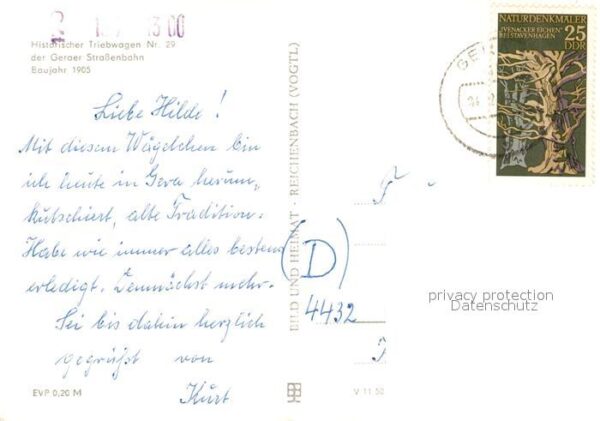 13 00
Historischer Triebwagen Nr. 29
der Geraer Straßenbahn
Baujahr 1905
Liebe Hilde!
Mit diesem Wägelchen bin
ich heute in Gera herum-
kutschiert, alte Tradition.
Habe wie immer alles bestens
erledigt. Demnächst mehr.
Sei bis dahin herzlich
gegrüßt von
Kurt
EVP 0,20 M
BILD UND HEIMAT · REICHENBACH (VOGTL)
V 11 50
NATURDENKMALER
"IVENACKER EICHEN"
BEI STAVENHAGEN
25
DDR
GE
F
(D)
4432
privacy protection
Datenschutz